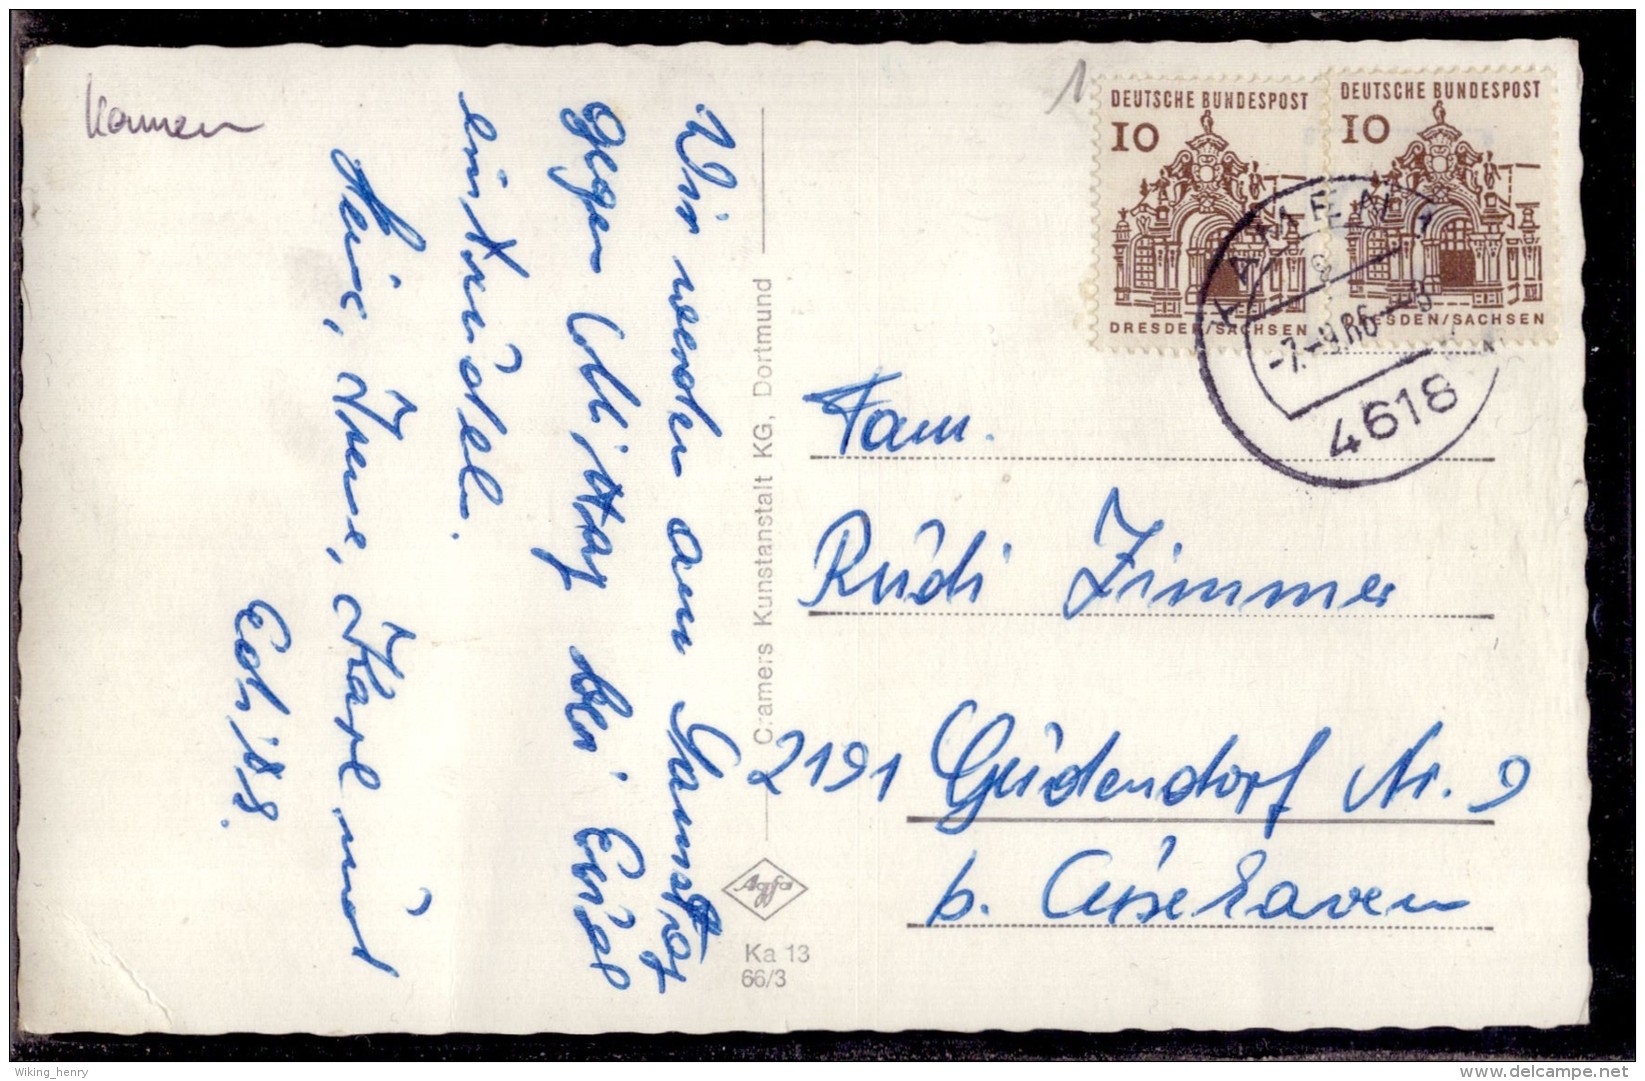 Kamen
1
DEUTSCHE BUNDESPOST
10
DRESDEN/SACHSEN
DEUTSCHE BUNDESPOST
10
DRESDEN/SACHSEN
KAMEN 1
a
-7.-9.66
4618
Wir werden am Samstag
gegen Mittag bei Euch
eintrudeln.
Heinz, Irene, Karl und
Edith.
Cramers Kunstanstalt KG, Dortmund
Agfa
Ka 13
66/3
Fam.
Rudi Zimmer
2191 Gudendorf Nr. 9
b. Cuxhaven
Wiking_henry
www.delcampe.net